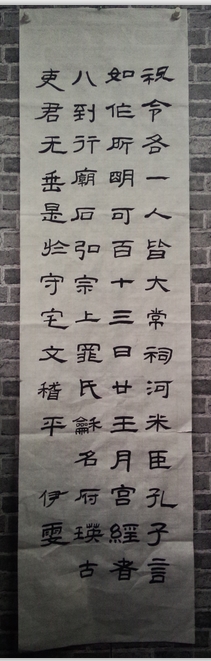 祝令各一人皆大常祠河米臣孔子言
如作所明可百十三日廿王月宫經者
八到行廟石弘宗上罪氏龢名府瑛古
吏君无垂是於守宅文稽平 伊雯